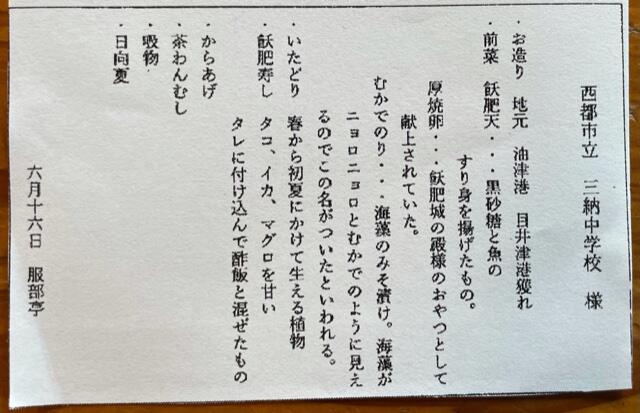 西都市立 三納中学校 様
・お造り 地元 油津港 目井津港獲れ
・前菜 飫肥天・・・黒砂糖と魚の
すり身を揚げたもの。
厚焼卵・・・飫肥城の殿様のおやつとして
献上されていた。
むかでのり・・・海藻のみそ漬け。海藻が
ニョロニョロとむかでのように見え
るのでこの名がついたといわれる。
・いたどり 春から初夏にかけて生える植物
・飫肥寿し タコ、イカ、マグロを甘い
タレに付け込んで酢飯と混ぜたもの
・からあげ
・茶わんむし
・吸物
・日向夏
六月十六日 服部亭